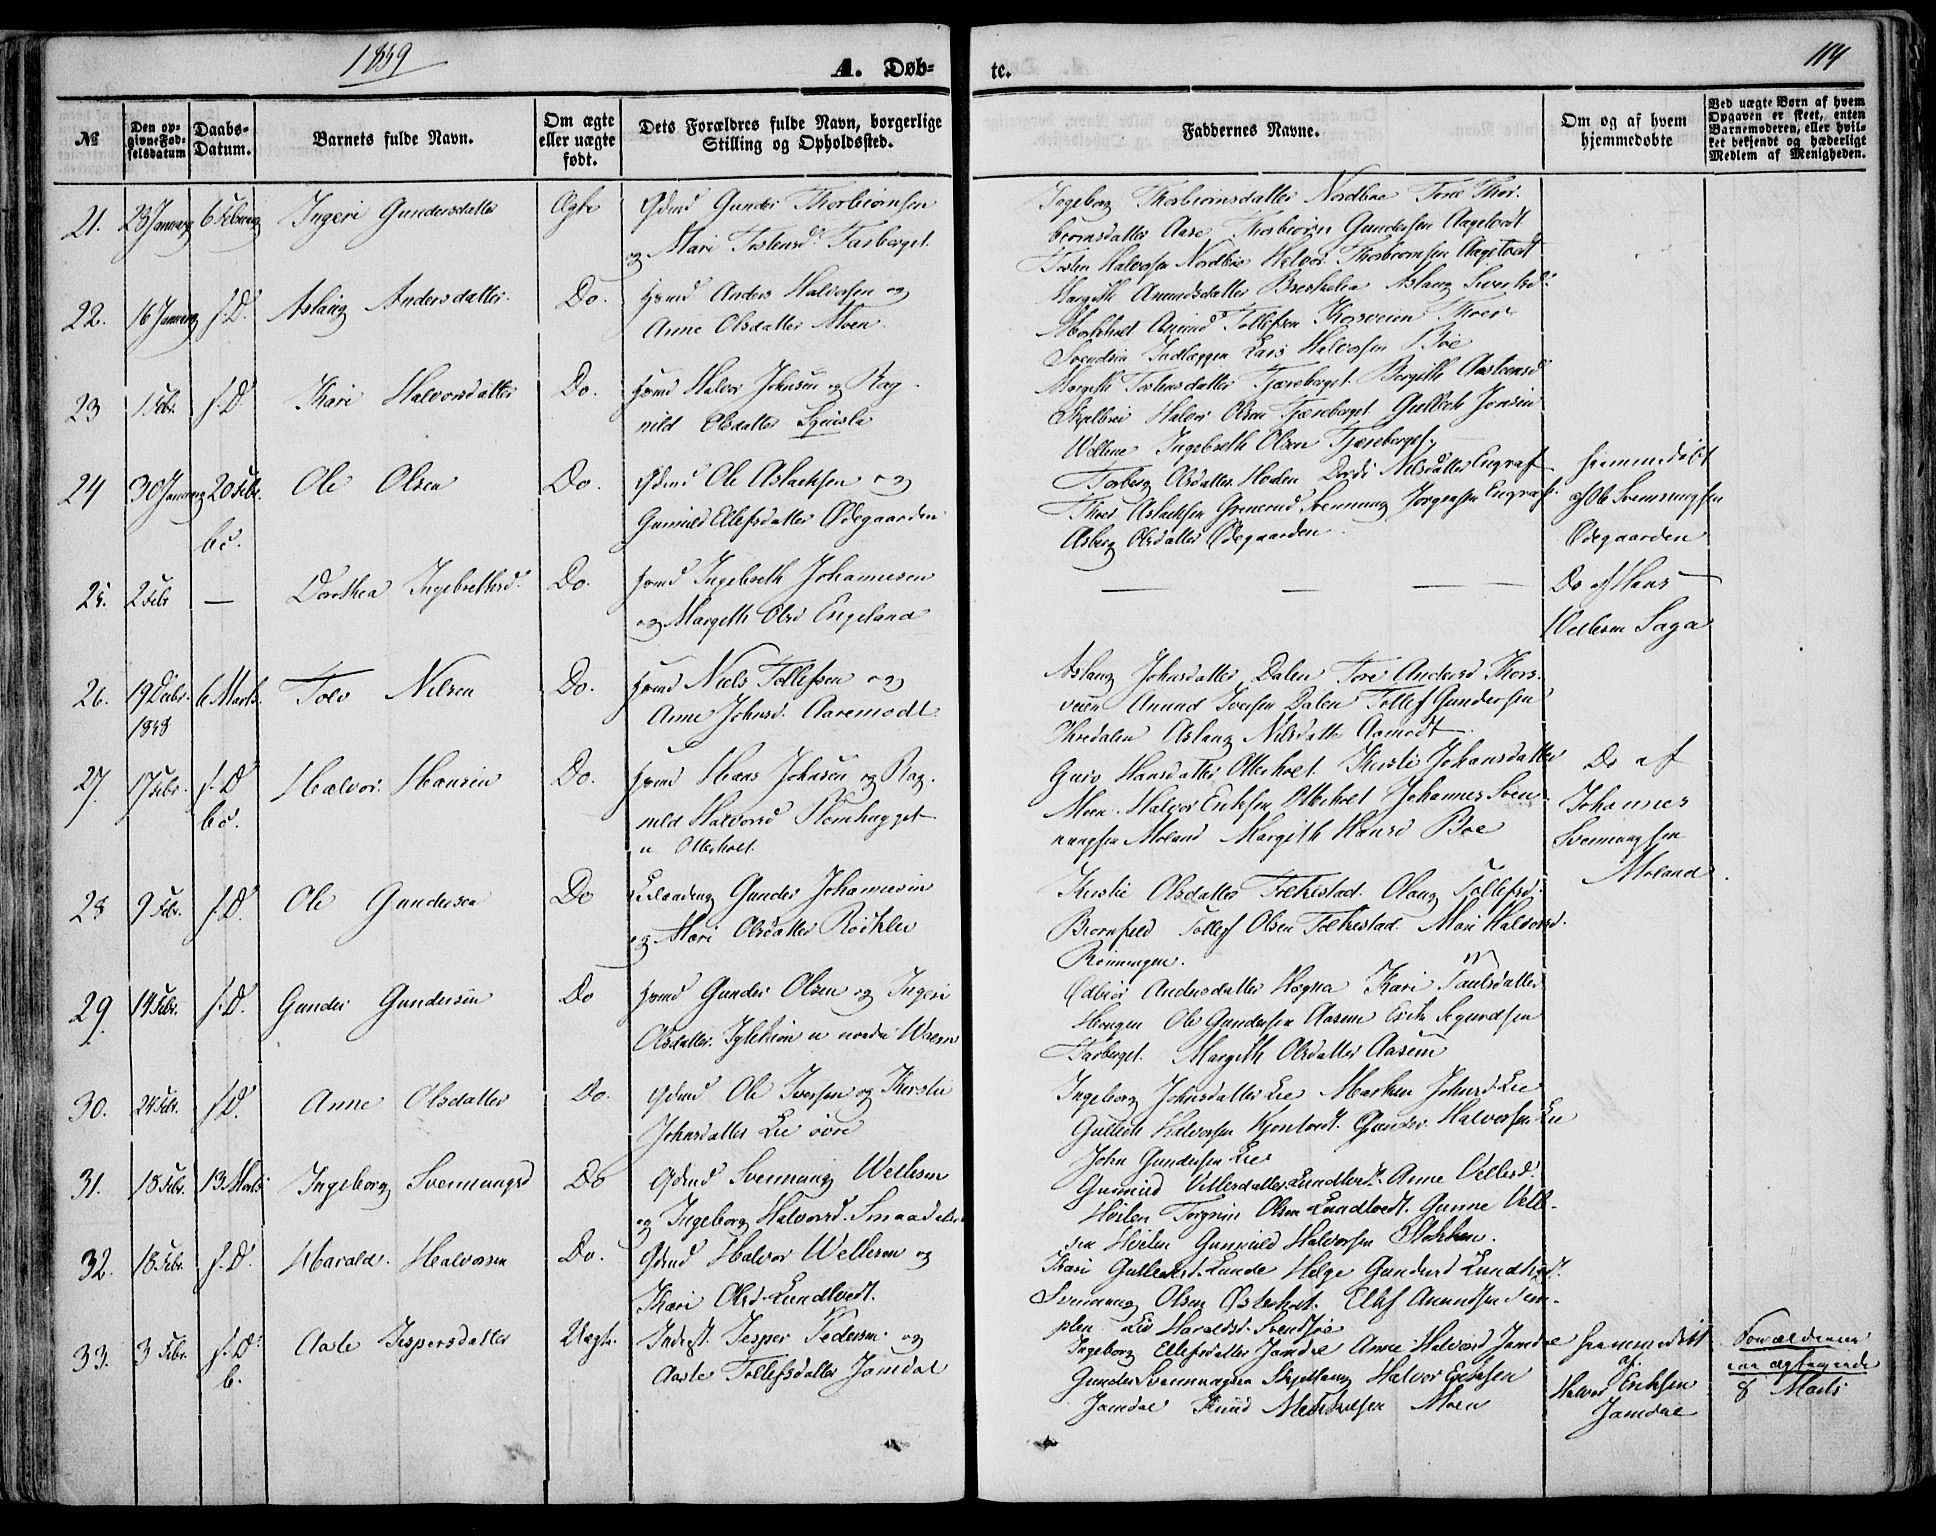 1859
A. Døb-
te.
114
№
Den op-
givne Fød-
selsdatum
Daabs-
Datum.
Barnets fulde Navn.
Om ægte
eller uægte
født.
Dets Forældres fulde Navn, borgerlige
Stilling og Opholdssted.
Faddernes Navne.
Om og af hvem
hjemmedøbte
Ved uægte Børn af hvem
Opgaven er skeet, enten
Barnemoderen, eller hvil-
ket bekjendt og hæderligt
Medlem af Menigheden.
21. 23 January 6 Februar Ingeri Gundersdatter Ægte Gdmd Gunder Thorbiørnsen
og Mari Tostensd. Tarberget.
Ingeborg Thorbiørnsdatter Nordbøe Tone Thor-
biørnsdatter Aase Thorbiørn Gundersen Aagetvedt
Tosten Halvorsen Nordbøe Halvor Thorbiørnsen Aagetvedt
22. 16 January s. D. Aslaug Andersdatter Do. Hmd Anders Halvorsen og
Anne Olsdatter Moen.
Margith Amundsdatter Aslaug Sverksd.
Anund Tollefsen Thorsveien Thor
Svendsen Lars Halvorsen Bøe
23 1 Febr. s. D. Kari Halvorsdatter Do. Hmd Halvor Johnsen og Rag-
nild Olsdatter
Margith Tostensdatter Tjæreberget Bergith Aasteensd
Halvor Olsen Tjæreberget Gullech Jonsen
Ingebreth Olsen Tjæreberget.
24 30 January 20 Febr. Ole Olsen Do. Gdmd Ole Aslachsen og
bc.
Gunild Ellefsdatter Ødegaarden
Torberg Olsdatter Hoden Dordi Nilsdatter Engraf
Thor Aslachsen Grinerud Svennung Jørgensen Engraf.
Asberg Olsdatter Ødegaarden.
hjemmedøbt
af Ole Svennungsen
Ødegaarden
25. 2 Febr — Dorthea Ingebrethsd. Do. Hmd Ingebreth Johannesen
og Margith Olsd Engeland
— — —
Do af Hans
Vellesen Saga
26. 19 Decbr. 6 Marts. Tov Nilsen Do. Hmd Niels Tollefsen og
1858
Anne Johnsd. Aaremodt
Aslaug Johnsdatter Dalen Tone Andersd Thors-
veien Anund Iversen Dalen Tollef Gundersen
Aslaug Nilsdatter Aamodt
27. 17 Febr. s. D. Halvor Hansen Do. Hmd Hans Johnsen og Rag-
bc.
nild Halvorsd Blomhugget
u Otterholt.
Guro Hansdatter Otterholt. Kirsti Johansdatter
Moen. Halvor Eriksen Otterholt Johannes Sven-
nungsen Moland Margith Hansd Bøe
Do af
Johannes
Svennungsen
Moland.
28 9 Febr. s. D. Ole Gundersen Do Gunder Johannesen
og Mari Olsdatter
Kirstie Olsdatter Folkestad Olaug Tollefsd.
Biørnfeld Tollef Olsen Folkestad. Mari Halvorsd.
Rønningen.
29. 14 Febr. s. D. Gunder Gundersen Do Hmd Gunder Olsen og Ingeri
Olsdatter. u nordre
Ødbiør Andersdatter Hægna Kari Paulsdatter
Haugen Ole Gundersen Aasem Erik Sigurdsen
Tarberget. Margith Olsdatter Aasem
30. 24 Febr. s. D. Anne Olsdatter Do. Gdmd Ole Iversen og Kirstie
Johnsdatter Lie øvre
Ingeborg Johnsdatter Lie Marthe Johnsd. Lie
Gullech Halvorsen Gunder Halvorsen Lie
John Gundersen Lie
31. 18 Febr. 13 Marts Ingeborg Svennungsd Do Gdmd Svennung Vellesen
og Ingeborg Halvorsd.
Gunnild Vellesdatter Lundtvedt. Anne Vellesd.
Hvilen Torgrim Olsen Lundtvedt. Gunne Velle-
sen Hvilen Gunnild Halvorsen Stokken.
32. 18 Febr. s. D. Harald Halvorsen Do. Gdmd Halvor Vellesen og
Kari Olsd. Lundtvedt.
Kari Gulleksd. Lunde Helge Gundersd Lundtvedt.
Svennung Olsen Østerholt. Ellef Anundsen Tem-
plen Liv Haraldsd.
33. 3 Febr. s. D. Aaste Jespersdatter Uægte. Inderst. Jesper Pedersen og
b.
Aaste Tollefsdatter Jamdal
Ingeborg Ellefsdatter Jamdal Anne Halvorsd Jamdal
Gunder Svennungsen Halvor Eriksen
Jamdal Knud Moen
hjemmedøbt
af
Halvor Eriksen
Jamdal
Forældrene
8 Marts